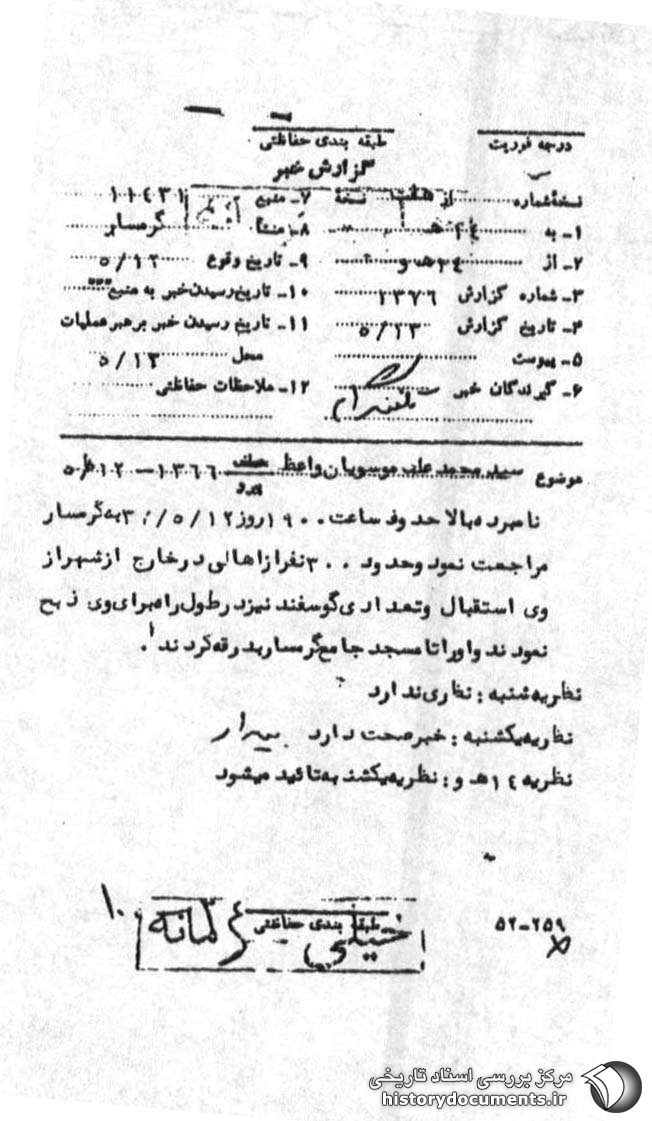 درجه فوریت
طبقه بندی حفاظتی
گزارش خبر
نسخهٔ شماره از نسخهٔ
۱ـ به
۲ـ از
۳ـ شماره گزارش ۱۳۷۶
۴ـ تاریخ گزارش ۵/۱۳
۵ـ پیوست
۶ـ گیرندگان خبر
۷ـ منبع ۱۱۴۳۱
۸ـ منشأ گرمسار
۹ـ تاریخ وقوع ۵/۱۲
۱۰ـ تاریخ رسیدن خبر به منبع
۱۱ـ تاریخ رسیدن خبر برهبر عملیات
محل ۵/۱۳
۱۲ـ ملاحظات حفاظتی
موضوع سید محمد علی موسویان واعظ
نامبرده بالا حدود ساعت ۱۹۰۰ روز ۵/۱۲ به گرمسار
مراجعت نمود و حدود ۳۰۰ نفر از اهالی در خارج از شهر از
وی استقبال و تعدادی گوسفند نیز در طول راه برای وی ذبح
نمودند و او را تا مسجد جامع گرمسار بدرقه کردند.
نظریه شنبه : نظری ندارد
نظریه یکشنبه : خبر صحت دارد
نظریه ۱۴ ه و : نظریه یکشنبه تائید میشود
۵۲-۲۵۹
طبقه بندی حفاظتی
خیلی محرمانه
مرکز بررسی اسناد تاریخی
historydocuments.ir